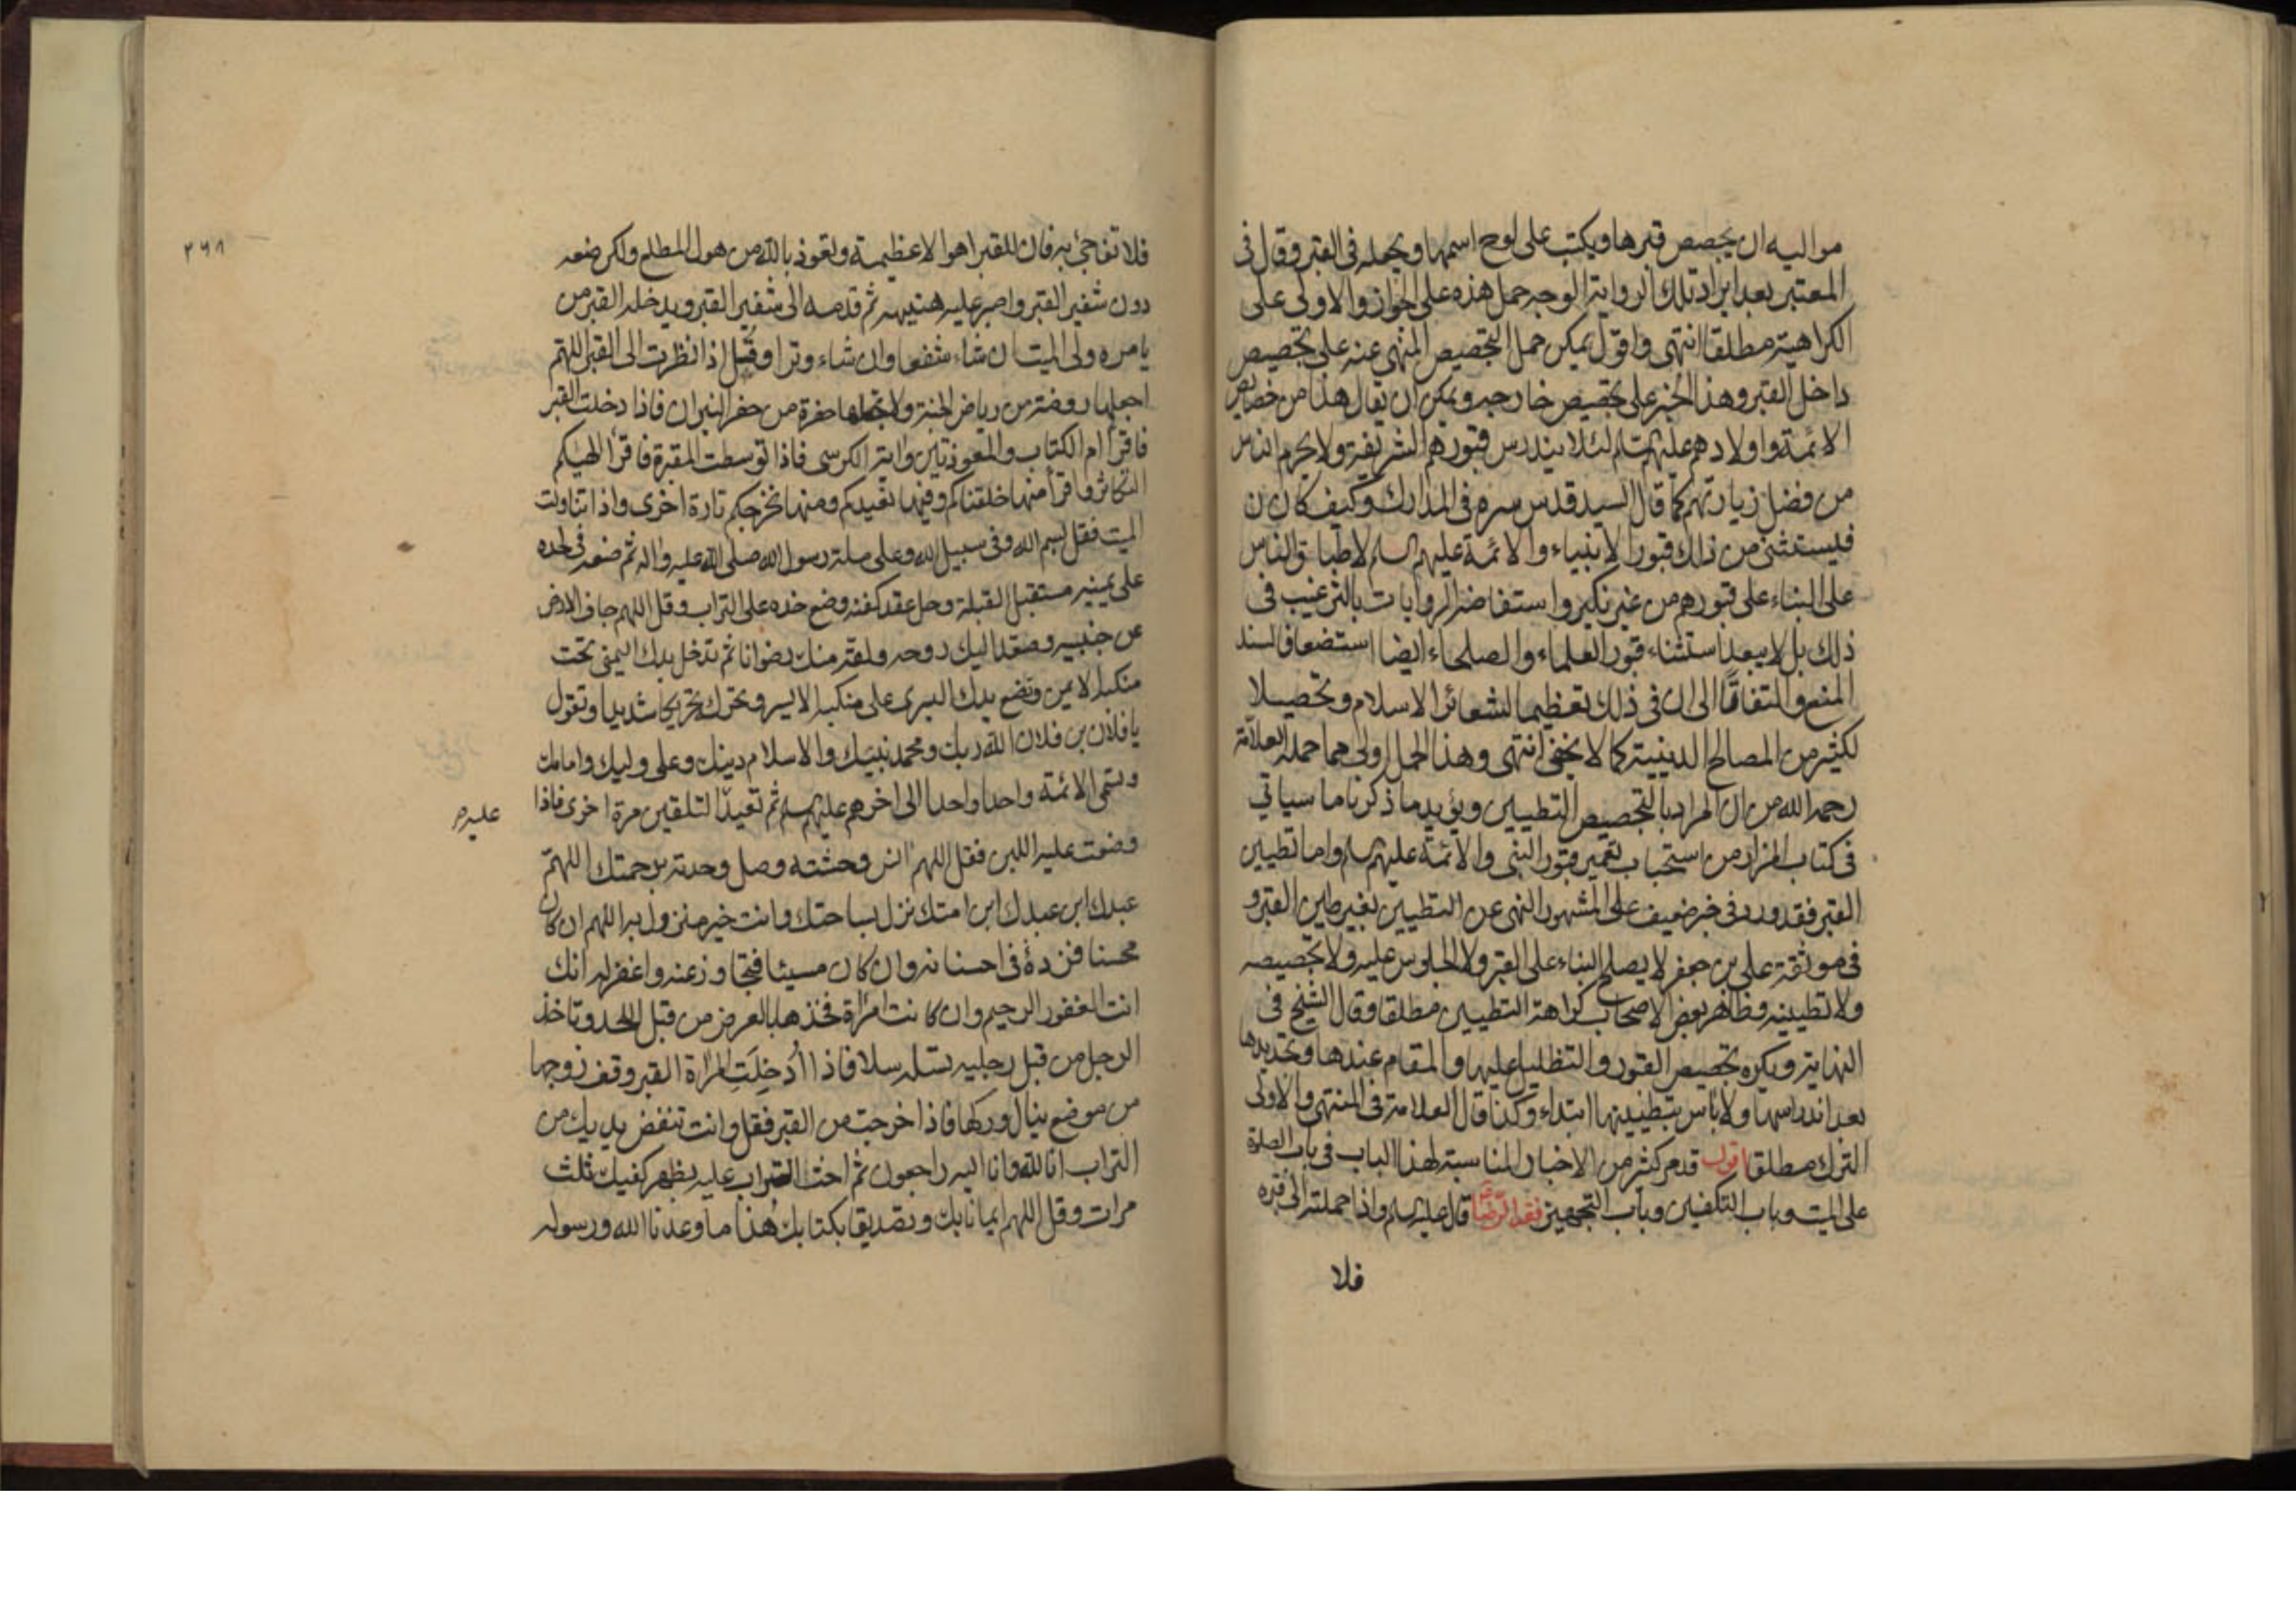 مواليه ان يجصص قبرها ويكتب على لوح اسمها ويجعله فى القبر وقال فى
المعتبر بعد ايراد تلك الرواية الوجه حمل هذه على الجواز والاولى على
الكراهية مطلقا انتهى واقول يمكن حمل التجصيص المنهى عنه على تجصيص
داخل القبر وهذا الخبر على تجصيص خارجه ويمكن ان يقال هذا من خصايص
الائمة واولادهم عليهم السلم لئلا يندرس قبورهم الشريفة ولا يحرم الناس
من فضل زيارتهم كما قال السيد قدس سره فى المدارك وكيف كان
فيستثنى من ذلك قبور الانبياء والائمة عليهم السلم لاطباق الناس
على البناء على قبورهم من غير نكير واستفاضة الروايات بالترغيب فى
ذلك بل لا يبعد استثناء قبور العلماء والصلحاء ايضا استضعافا لسند
المنع والتفاتا الى ان فى ذلك تعظيما لشعائر الاسلام وتحصيلا
لكثير من المصالح الدينية كما لا يخفى انتهى وهذا الحمل اولى مما حمله العلامة
رحمه الله من ان المراد بالتجصيص التطيين ويؤيد ما ذكرناه ما سياتي
فى كتاب المزار من استحباب تعمير قبور النبى والائمة عليهم السلم واما تطيين
القبر فقد ورد فى خبر ضعيف على المشهور النهى عن التطيين بغير طين القبر و
فى موثقة على بن جعفر لا يصلح البناء على القبر ولا الجلوس عليه ولا تجصيصه
ولا تطيينه وظاهر بعض الاصحاب كراهة التطيين مطلقا وقال الشيخ فى
النهاية ويكره تجصيص القبور والتظليل عليها والمقام عندها وتجديدها
بعد اندراسها ولا باس بتطيينها ابتداء وكذا قال العلامة فى المنتهى والاولى
الترك مطلقا اقول قد مر كثير من الاخبار المناسبة لهذا الباب فى باب الصلوة
على الميت وباب التكفين وباب التجهيز فقه الرضا قال عليه السلم واذا حملته الى قبره
فلا
٢٦٨
فلا تفاجئ به فان للقبر اهوالا عظيمة ونعوذ بالله من هول المطلع ولكن ضعه
دون شفير القبر واصبر عليه هنيهة ثم قدمه الى شفير القبر ويدخله القبر من
يامره ولى الميت ان شاء شفعا وان شاء وترا وقل اذا نظرت الى القبر اللهم
اجعلها روضة من رياض الجنة ولا تجعلها حفرة من حفر النيران فاذا دخلت القبر
فاقرا ام الكتاب والمعوذتين واية الكرسى فاذا توسطت المقبرة فاقرا الهيكم
التكاثر واقرا منها خلقناكم وفيها نعيدكم ومنها نخرجكم تارة اخرى واذا تناولت
الميت فقل بسم الله وفى سبيل الله وعلى ملة رسول الله صلى الله عليه واله ثم ضعه فى لحده
على يمينه مستقبل القبلة وحل عقد كفنه وضع خده على التراب وقل اللهم جاف الارض
عن جنبيه وصعد اليك روحه ولقه منك رضوانا ثم تدخل يدك اليمنى تحت
منكبه الايمن وتضع يدك اليسرى على منكبه الايسر وتحركه تحريكا شديدا وتقول
يا فلان بن فلان الله ربك ومحمد نبيك والاسلام دينك وعلى وليك وامامك
وتسمى الائمة واحدا واحدا الى اخرهم عليهم السلم ثم تعيد التلقين مرة اخرى فاذا
عليه
وضعت عليه اللبن فقل اللهم انس وحشته وصل وحدته برحمتك اللهم
عبدك ابن عبدك ابن امتك نزل بساحتك وانت خير منزول به اللهم ان كان
محسنا فزد فى احسانه وان كان مسيئا فتجاوز عنه واغفر له انك
انت الغفور الرحيم وان كانت امراة فخذها بالعرض من قبل اللحد وتاخذ
الرجل من قبل رجليه تسله سلا فاذا ادخلت المراة القبر وقف زوجها
من موضع ينال وركها فاذا خرجت من القبر فقل وانت تنفض يديك من
التراب انا لله وانا اليه راجعون ثم احث التراب عليه بظهر كفيك ثلث
مرات وقل اللهم ايمانا بك وتصديقا بكتابك هذا ما وعدنا الله ورسوله